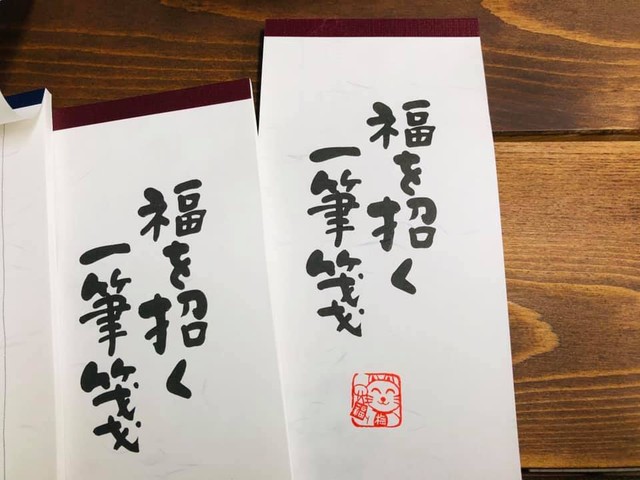 福を招く
一筆箋
福を招く
一筆箋
福
梅